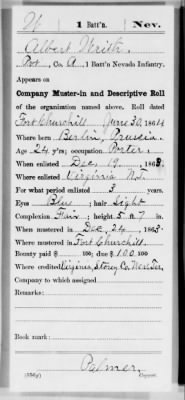 W | 1 Batt'n. | Nev.
Albert Writh.
Pvt., Co. A, 1 Batt'n Nevada Infantry.
Appears on
Company Muster-in and Descriptive Roll
of the organization named above. Roll dated
Fort Churchill June 30, 1864
Where born Berlin, Prussia.
Age 24 y'rs; occupation Porter.
When enlisted Dec. 19, 1863.
Where enlisted Virginia N.T.
For what period enlisted 3 years.
Eyes Blue; hair Light
Complexion Fair; height 5 ft. 7 in.
When mustered in Dec. 24, 1863.
Where mustered in Fort Churchill.
Bounty paid $ 100; due $ 100 100
Where credited Virginia, Storey Co. Nev. Ter.
Company to which assigned
Remarks:
Book mark:
Palmer,
(356g) Copyist.